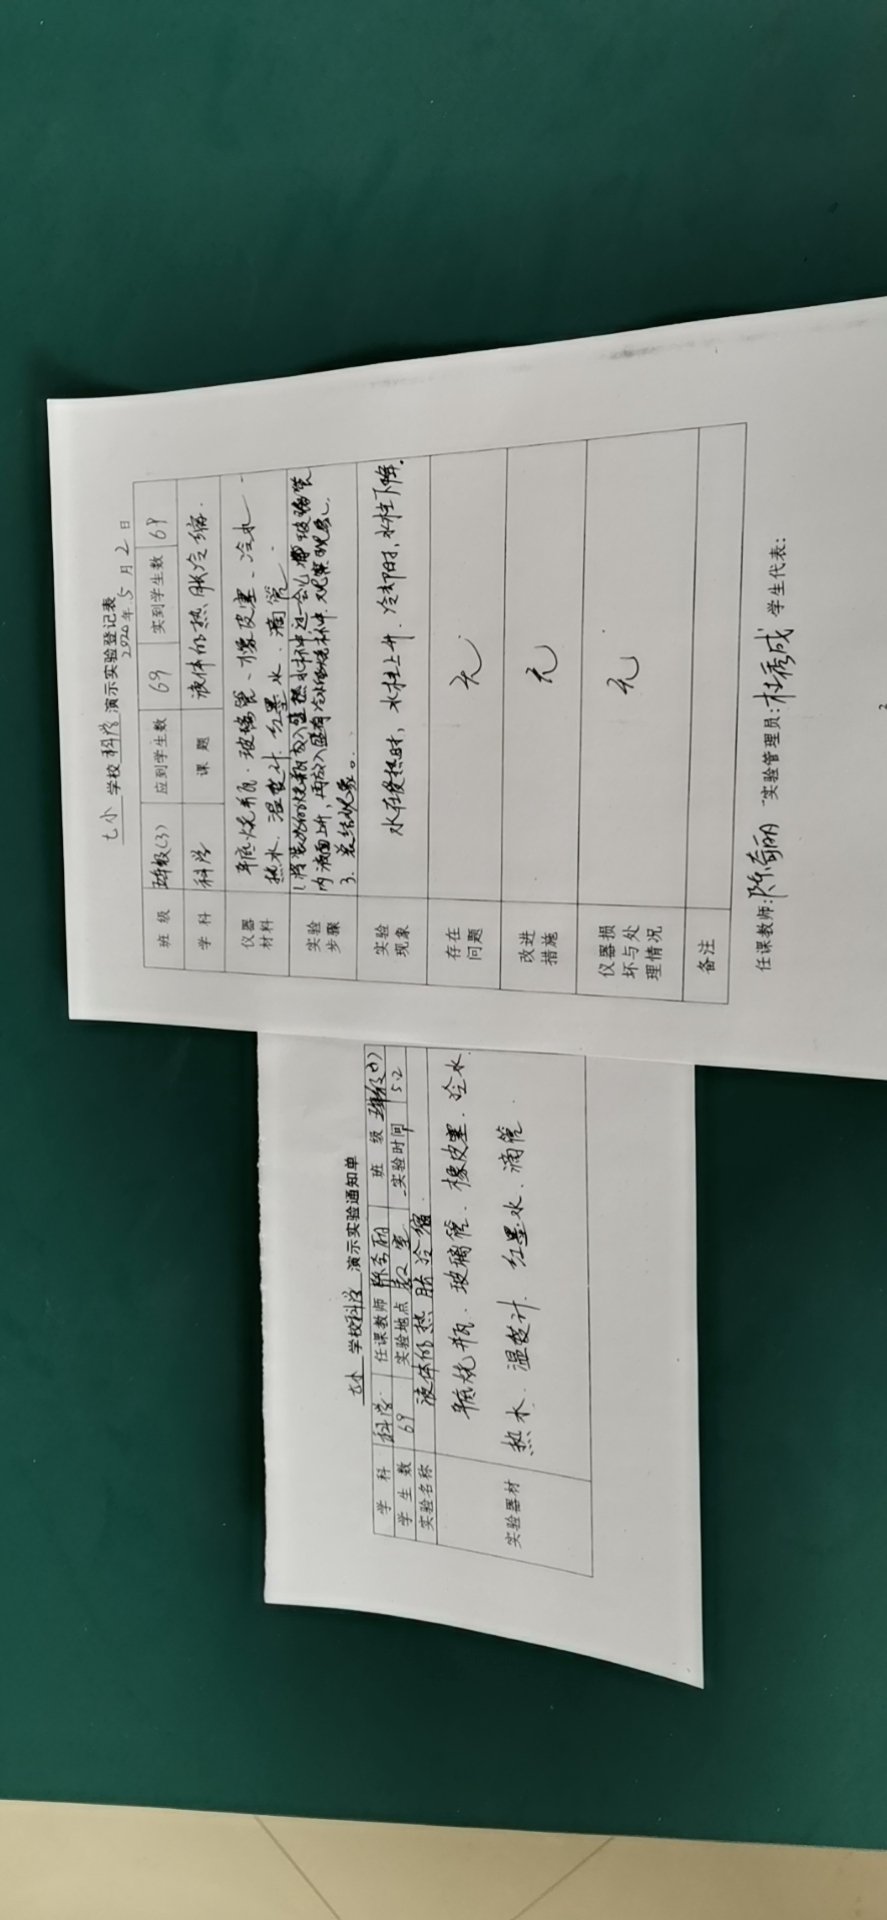 七小 学校科学 演示实验登记表
2020年5月2日
班 级 五年级(3) 应到学生数 69 实到学生数 69
学 科 科学 课 题 液体的热胀冷缩.
仪器材料 平底烧瓶.玻璃管、橡皮塞、冷水
热水.温度计.红墨水.滴管.
实验步骤 1.将装水的烧瓶放入盛热水杯中,过一会儿 玻璃管
内液面上升,再放入盛有冷水的烧杯中.观察现象.
3.总结现象。
实验现象 水在受热时,水柱上升.冷却时,水柱下降.
存在问题 无
改进措施 无
仪器损坏与处理情况 无
备注
任课教师:陈奇丽 实验管理员:杜秀成 学生代表:
七小 学校科学 演示实验通知单
学 科 科学 任课教师 陈奇丽 班 级
学 生 数 69 实验地点 教室 实验时间 5.2
实验名称 液体的热胀冷缩
实验器材 平底烧瓶.玻璃管.橡皮塞.冷水
热水.温度计.红墨水.滴管